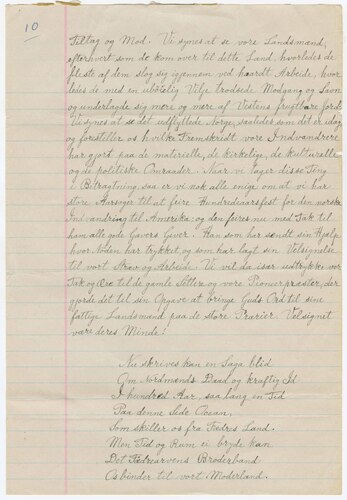 10
Tiltag og Mod. Vi synes at se vore Landsmænd,
efterhvert som de kom over til dette Land, hvorledes de
fleste af dem slog sig igjennem ved haardt Arbeide, hvor
ledes de med en ubøielig Vilje trodsede Modgang og Savn
og underlagde sig mere og mere af Vestens frugtbare Jord.
Vi synes at se det udflyttede Norge, saaledes som det er idag
og forestiller os hvilke Fremskridt vore Indvandrere
har gjort paa de materielle, de kirkelige, de kulturelle
og de politiske Omraader. Naar vi tager disse Ting
i Betragtning, saa er vi nok alle enige om at vi har
store Aarsager til at feire Hundredeaarsfest for den norske
Indvandring til Amerika; og den feires nu med Tak til
ham alle gode Gavers Giver. Han som har sendt sin Hjælp
hvor Nøden har trykket, og som har lagt sin Velsignelse
til vort Stræv og Arbeide. Vi vil da især udtrykke vor
Tak og Ære til de gamle Settlere og vore Pionerpræster, der
gjorde det til sin Opgave at bringe Guds Ord til sine
fattige Landsmænd paa de store Prærier. Velsignet
være deres Minde!
Nu skrives kan en Saga blid
Om Nordmænds Daad og kraftig Id
I hundred Aar, saa lang en Tid
Paa denne Side Ocean,
Som skiller os fra Fædres Land.
Men Tid og Rum ei bryde kan
Det Fædrearvens Broderbaand
Os binder til vort Moderland.